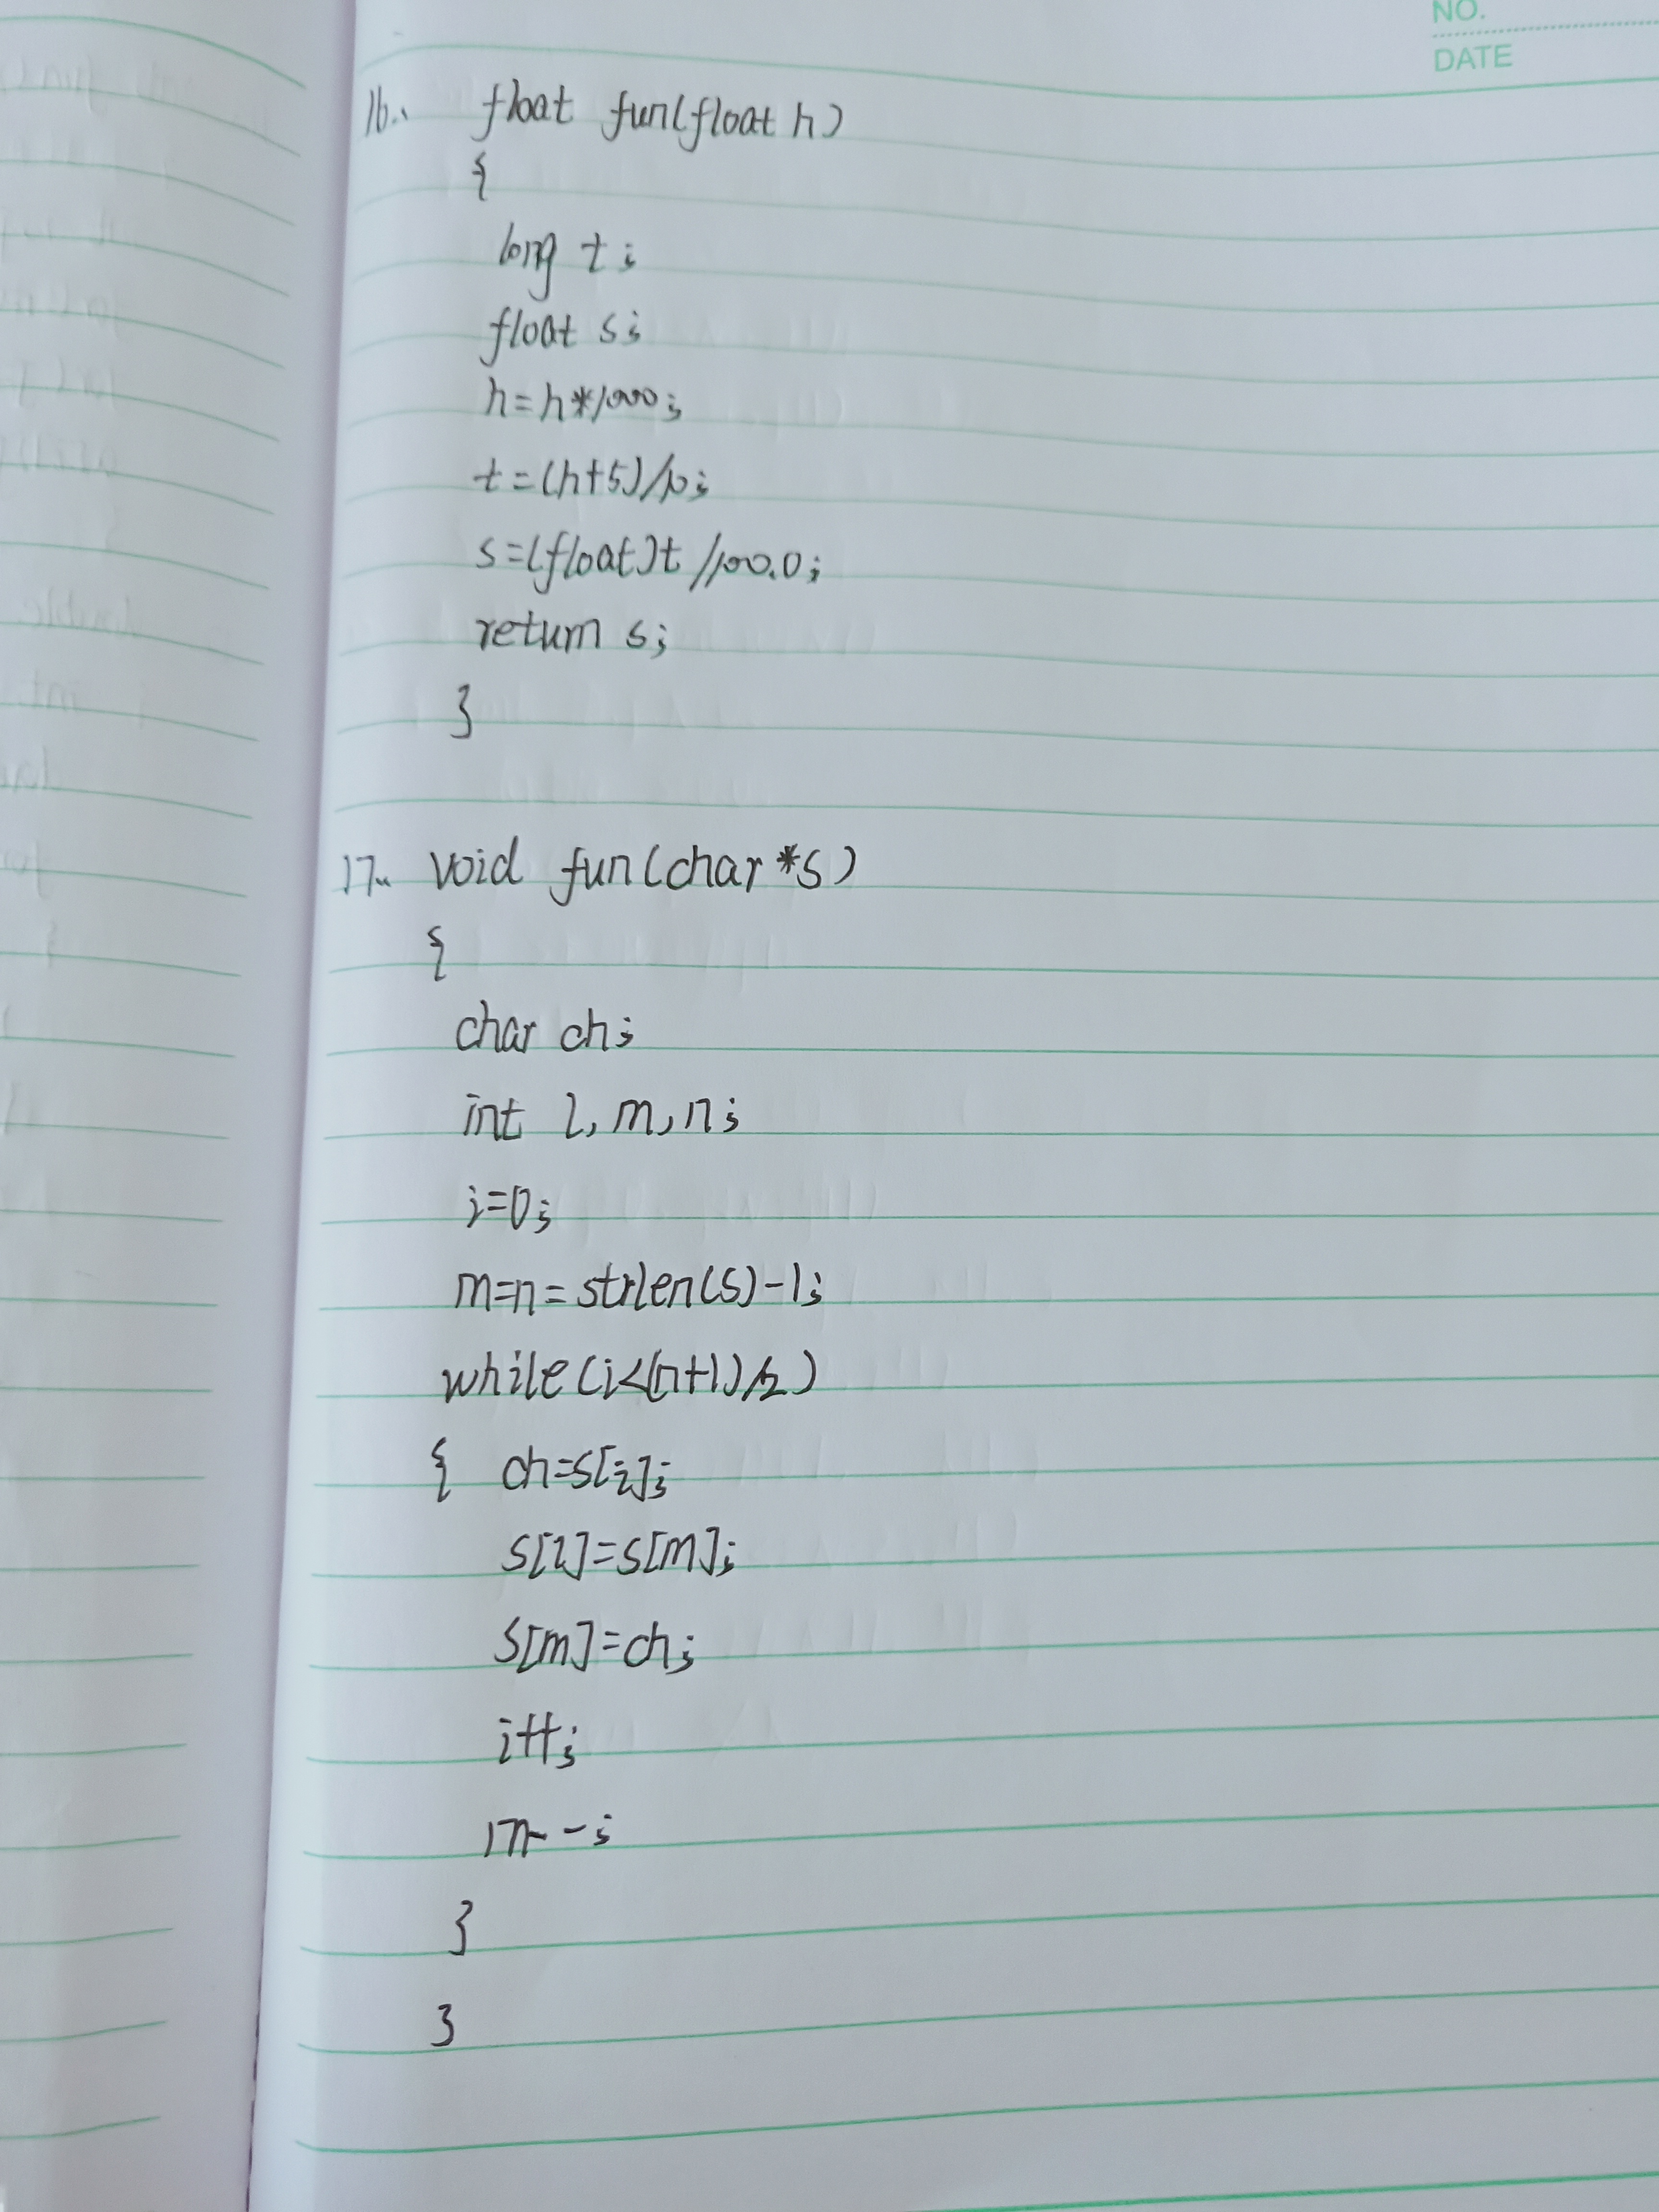 NO.
DATE
16. float fun(float h)
{
long t;
float s;
h=h*1000;
t=(h+5)/10;
s=(float)t/100.0;
return s;
}
17. void fun(char *s)
{
char ch;
int i, m, n;
i=0;
m=n=strlen(s)-1;
while(i<(n+1)/2)
{ ch=s[i];
s[i]=s[m];
s[m]=ch;
i++;
m--;
}
}